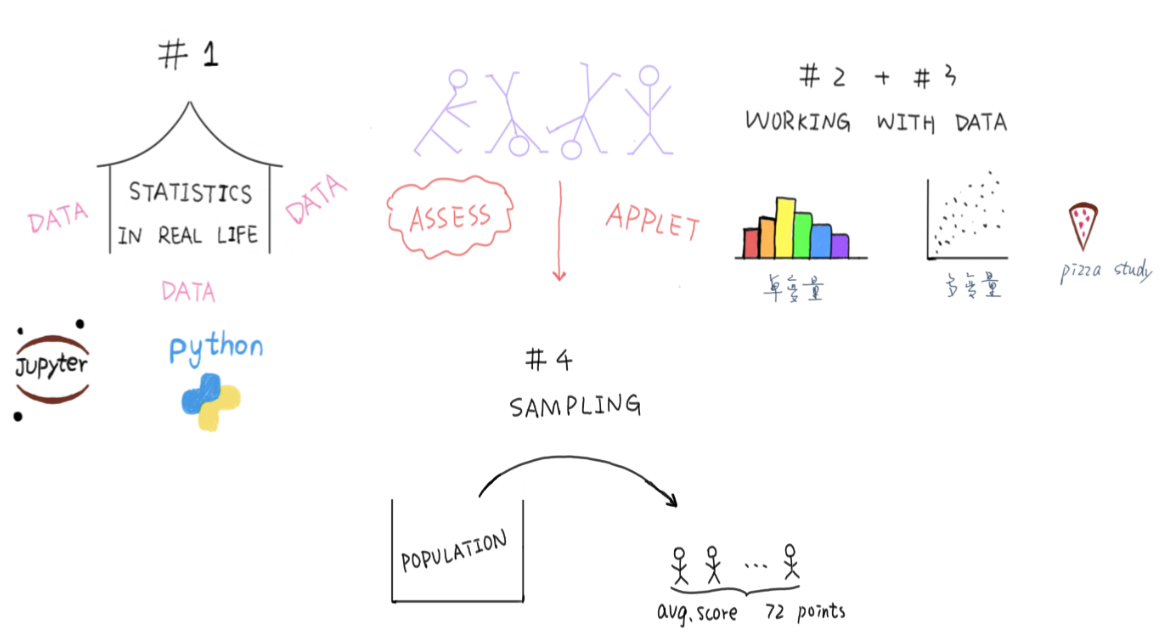 # 1
STATISTICS
IN REAL LIFE
DATA
DATA
DATA
Jupyter
python
ASSESS
APPLET
# 2 + # 3
WORKING WITH DATA
单变量
多变量
pizza study
# 4
SAMPLING
POPULATION
...
avg. score 72 points